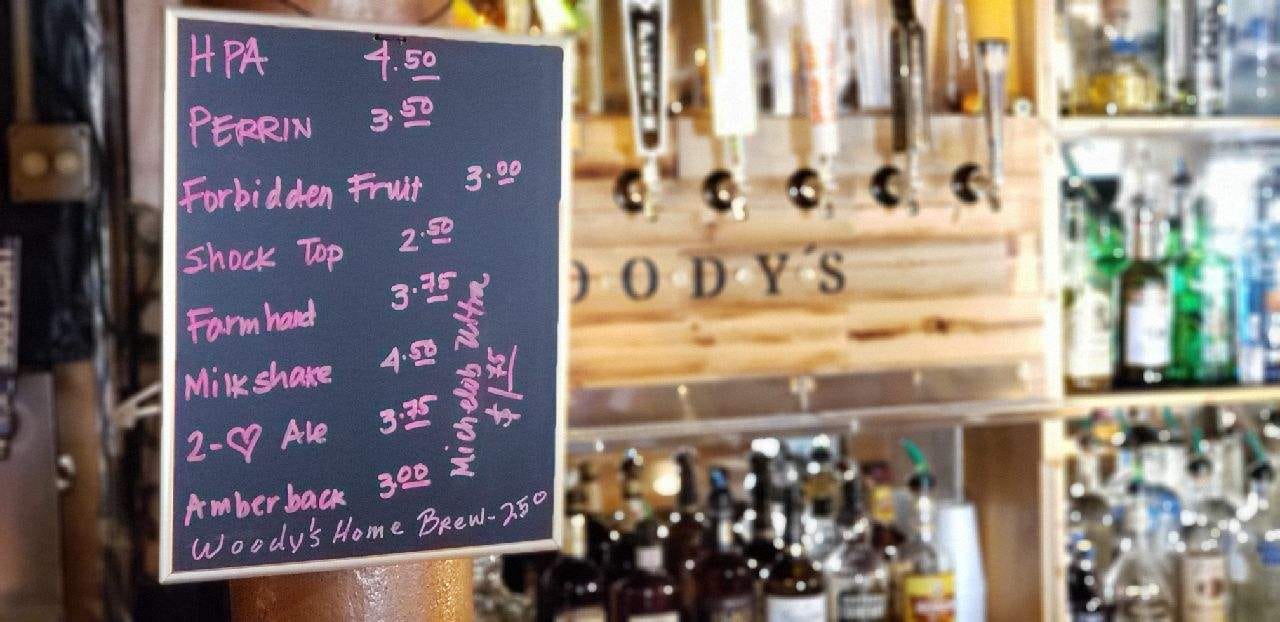 HPA 4.50
PERRIN 3.50
Forbidden Fruit 3.00
Shock Top 2.50
Farmhand 3.75
Milkshake 4.50
2-♡ Ale 3.75
Amberback 3.00
Woody's Home Brew-250
Michelob Ultra
$1.75
OODY'S